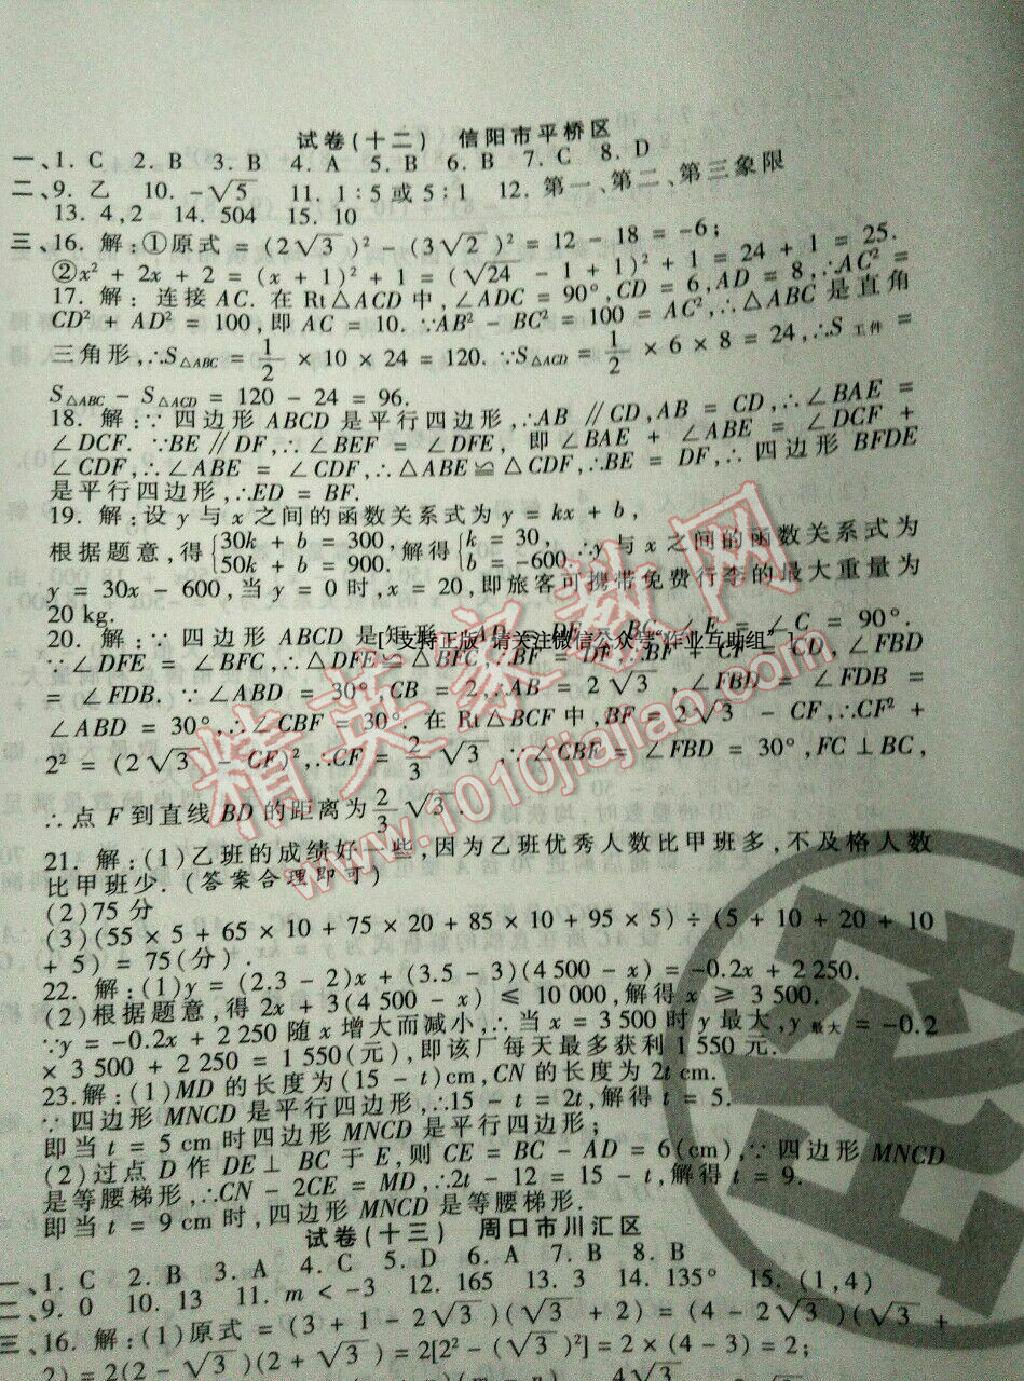 试卷(十二) 信阳市平桥区
一、1. C 2. B 3. B 4. A 5. B 6. B 7. C 8. D
二、9. 乙 10. -√5 11. 1:5或5:1 12. 第一、第二、第三象限
13. 4,2 14. 504 15. 10
三、16. 解:①原式 = (2√3)² - (3√2)² = 12 - 18 = -6;
②x² + 2x + 2 = (x + 1)² + 1 = (√24 - 1 + 1)² + 1 = 24 + 1 = 25.
17. 解: 连接 AC. 在 Rt△ACD 中,∠ADC = 90°,CD = 6,AD = 8,∴AC² =
CD² + AD² = 100,即 AC = 10. ∵AB² - BC² = 100 = AC²,∴△ABC 是直角
三角形,∴S△ABC = 1/2 × 10 × 24 = 120. ∵S△ACD = 1/2 × 6 × 8 = 24,∴S工件 =
S△ABC - S△ACD = 120 - 24 = 96.
18. 解:∵ 四边形 ABCD 是平行四边形,∴AB∥CD,AB = CD,∴∠BAE =
∠DCF. ∵BE∥DF,∴∠BEF = ∠DFE, 即∠BAE + ∠ABE = ∠DCF +
∠CDF,∴∠ABE = ∠CDF,∴△ABE≌△CDF,∴BE = DF,∴ 四边形 BFDE
是平行四边形,∴ED = BF.
19. 解:设 y 与 x 之间的函数关系式为 y = kx + b,
根据题意,得{30k + b = 300, 50k + b = 900. 解得{k = 30, b = -600 ∴y 与 x 之间的函数关系式为
y = 30x - 600,当 y = 0 时,x = 20,即旅客可携带免费行李的最大重量为
20 kg.
20. 解:∵ 四边形 ABCD 是矩形, AD = DE = BC,∠E = ∠C = 90°.
∵∠DFE = ∠BFC,∴△DFE≌△BFC,∴BF = DF,∴BF + CF = CD,∠FBD
= ∠FDB. ∵∠ABD = 30°,CB = 2,∴AB = 2√3,∠FBD = ∠FDB =
∠ABD = 30°,∴∠CBF = 30°. 在 Rt△BCF 中,BF = 2√3 - CF,∴CF² +
2² = (2√3 - CF)²,∴CF = 2/3 √3. ∵∠CBF = ∠FBD = 30°,FC⊥BC,
∴点 F 到直线 BD 的距离为 2/3 √3.
21. 解:(1)乙班的成绩好一些,因为乙班优秀人数比甲班多,不及格人数
比甲班少.(答案合理即可)
(2)75 分
(3)(55 × 5 + 65 × 10 + 75 × 20 + 85 × 10 + 95 × 5) ÷ (5 + 10 + 20 + 10
+ 5) = 75(分).
22. 解:(1)y = (2.3 - 2)x + (3.5 - 3)(4 500 - x) = -0.2x + 2 250.
(2)根据题意,得 2x + 3(4 500 - x) ≤ 10 000,解得 x ≥ 3 500.
∵y = -0.2x + 2 250 随 x 增大而减小,∴当 x = 3 500 时 y 最大,y最大 = -0.2
× 3 500 + 2 250 = 1 550(元),即该厂每天最多获利 1 550 元.
23.解:(1)MD 的长度为(15 - t)cm,CN 的长度为 2t cm.
∵四边形 MNCD 是平行四边形,∴15 - t = 2t,解得 t = 5.
即当 t = 5 cm 时四边形 MNCD 是平行四边形;
(2)过点 D 作 DE⊥BC 于 E,则 CE = BC - AD = 6(cm),∵四边形 MNCD
是等腰梯形,∴CN - 2CE = MD,∴2t - 12 = 15 - t,解得 t = 9.
即当 t = 9 cm 时,四边形 MNCD 是等腰梯形.
试卷(十三) 周口市川汇区
一、1. C 2. B 3. A 4. C 5. D 6. A 7. B 8. B
二、9. 0 10. 13 11. m < -3 12. 165 13. 3 14. 135° 15. (1,4)
三、16. 解:(1)原式 = (3 + 1 - 2√3)(√3 + 2) = (4 - 2√3)(√3 +
2) = 2(2 - √3)(2 + √3) = 2[2² - (√3)²] = 2 × (4 - 3) = 2;
4√3
精英家教网
www.1010jiajiao.com
【 支持正版 请关注微信公众号"作业互助组" 】